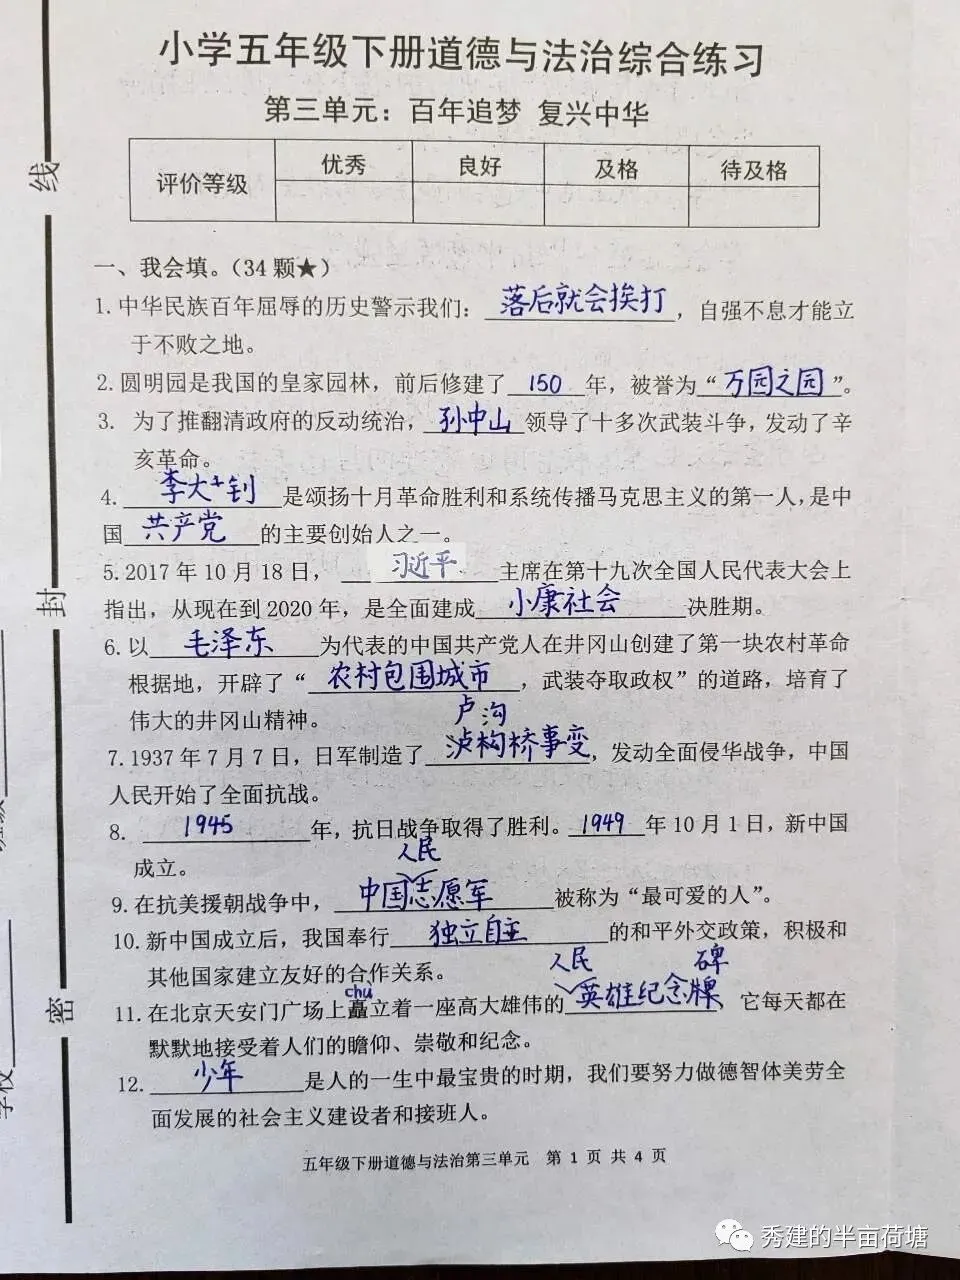 小学五年级下册道德与法治综合练习
第三单元：百年追梦 复兴中华
评价等级 优秀 良好 及格 待及格
线
一、我会填。（34 颗★）
1.中华民族百年屈辱的历史警示我们：落后就会挨打，自强不息才能立
于不败之地。
2.圆明园是我国的皇家园林，前后修建了 150 年，被誉为“万园之园”。
3. 为了推翻清政府的反动统治，孙中山领导了十多次武装斗争，发动了辛
亥革命。
4. 李大钊是颂扬十月革命胜利和系统传播马克思主义的第一人，是中
国共产党的主要创始人之一。
5.2017 年 10 月 18 日，习近平主席在第十九次全国人民代表大会上
指出，从现在到 2020 年，是全面建成小康社会决胜期。
封
6.以毛泽东为代表的中国共产党人在井冈山创建了第一块农村革命
根据地，开辟了“农村包围城市，武装夺取政权”的道路，培育了
伟大的井冈山精神。
卢沟
7.1937 年 7 月 7 日，日军制造了泸构桥事变，发动全面侵华战争，中国
人民开始了全面抗战。
8. 1945 年，抗日战争取得了胜利。1949 年 10 月 1 日，新中国
成立。
人民
9.在抗美援朝战争中，中国志愿军被称为“最可爱的人”。
10.新中国成立后，我国奉行独立自主的和平外交政策，积极和
其他国家建立友好的合作关系。
人民 碑
chù
11.在北京天安门广场上矗立着一座高大雄伟的英雄纪念牌，它每天都在
默默地接受着人们的瞻仰、崇敬和纪念。
密
12. 少年是人的一生中最宝贵的时期，我们要努力做德智体美劳全
面发展的社会主义建设者和接班人。
学校
五年级下册道德与法治第三单元 第 1 页 共 4 页
秀建的半亩荷塘